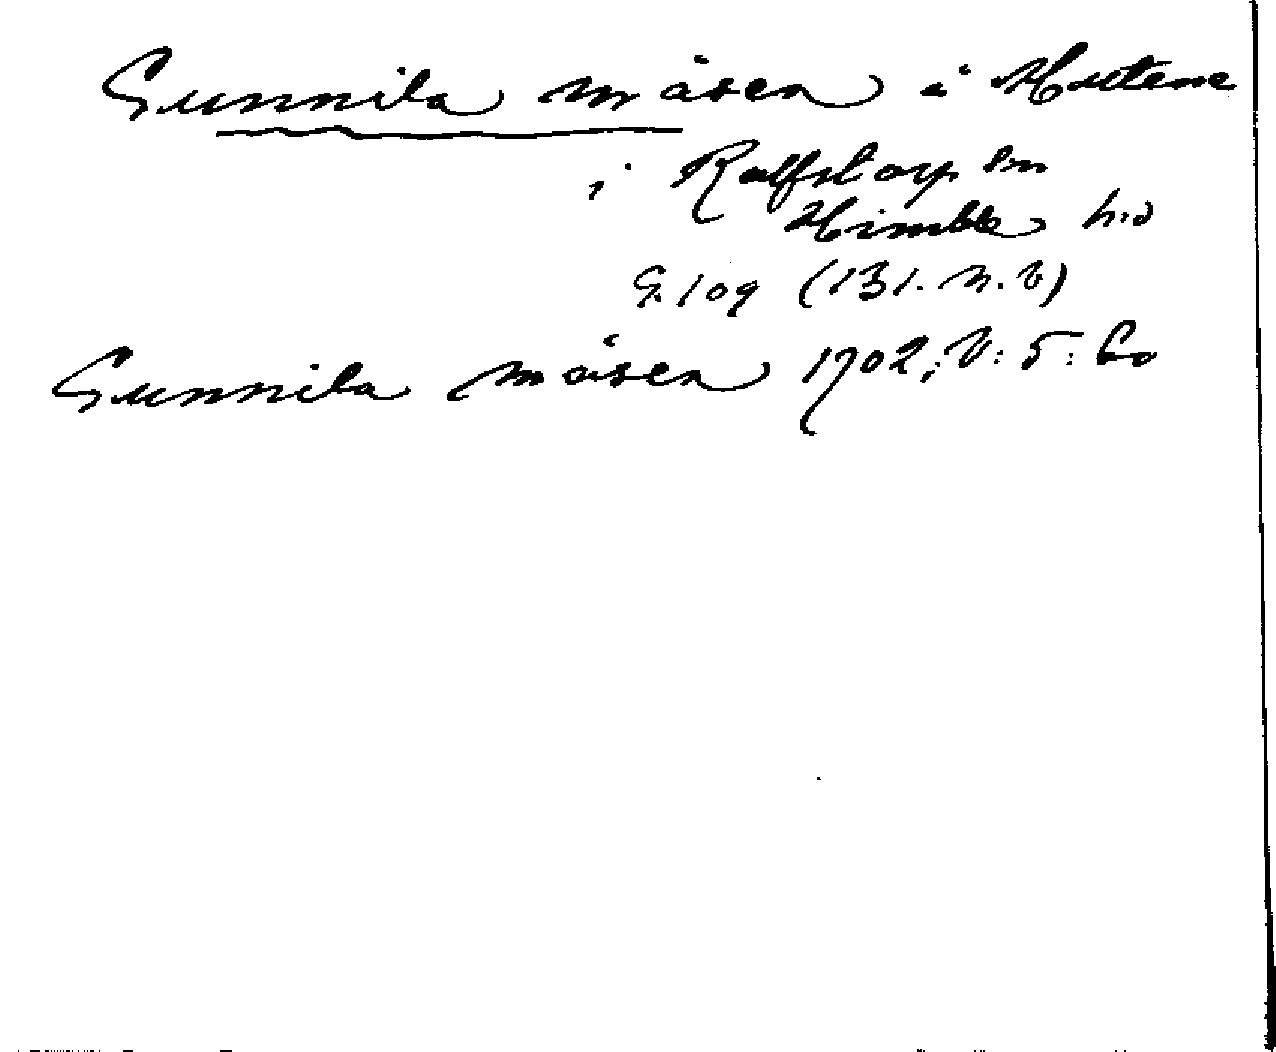 Gunnila måsen i Hutene
i Rolfstorp sn
Himble h:d
G. 109 (131. n. b)
Gunnila måsen 1702; V: 5: 60